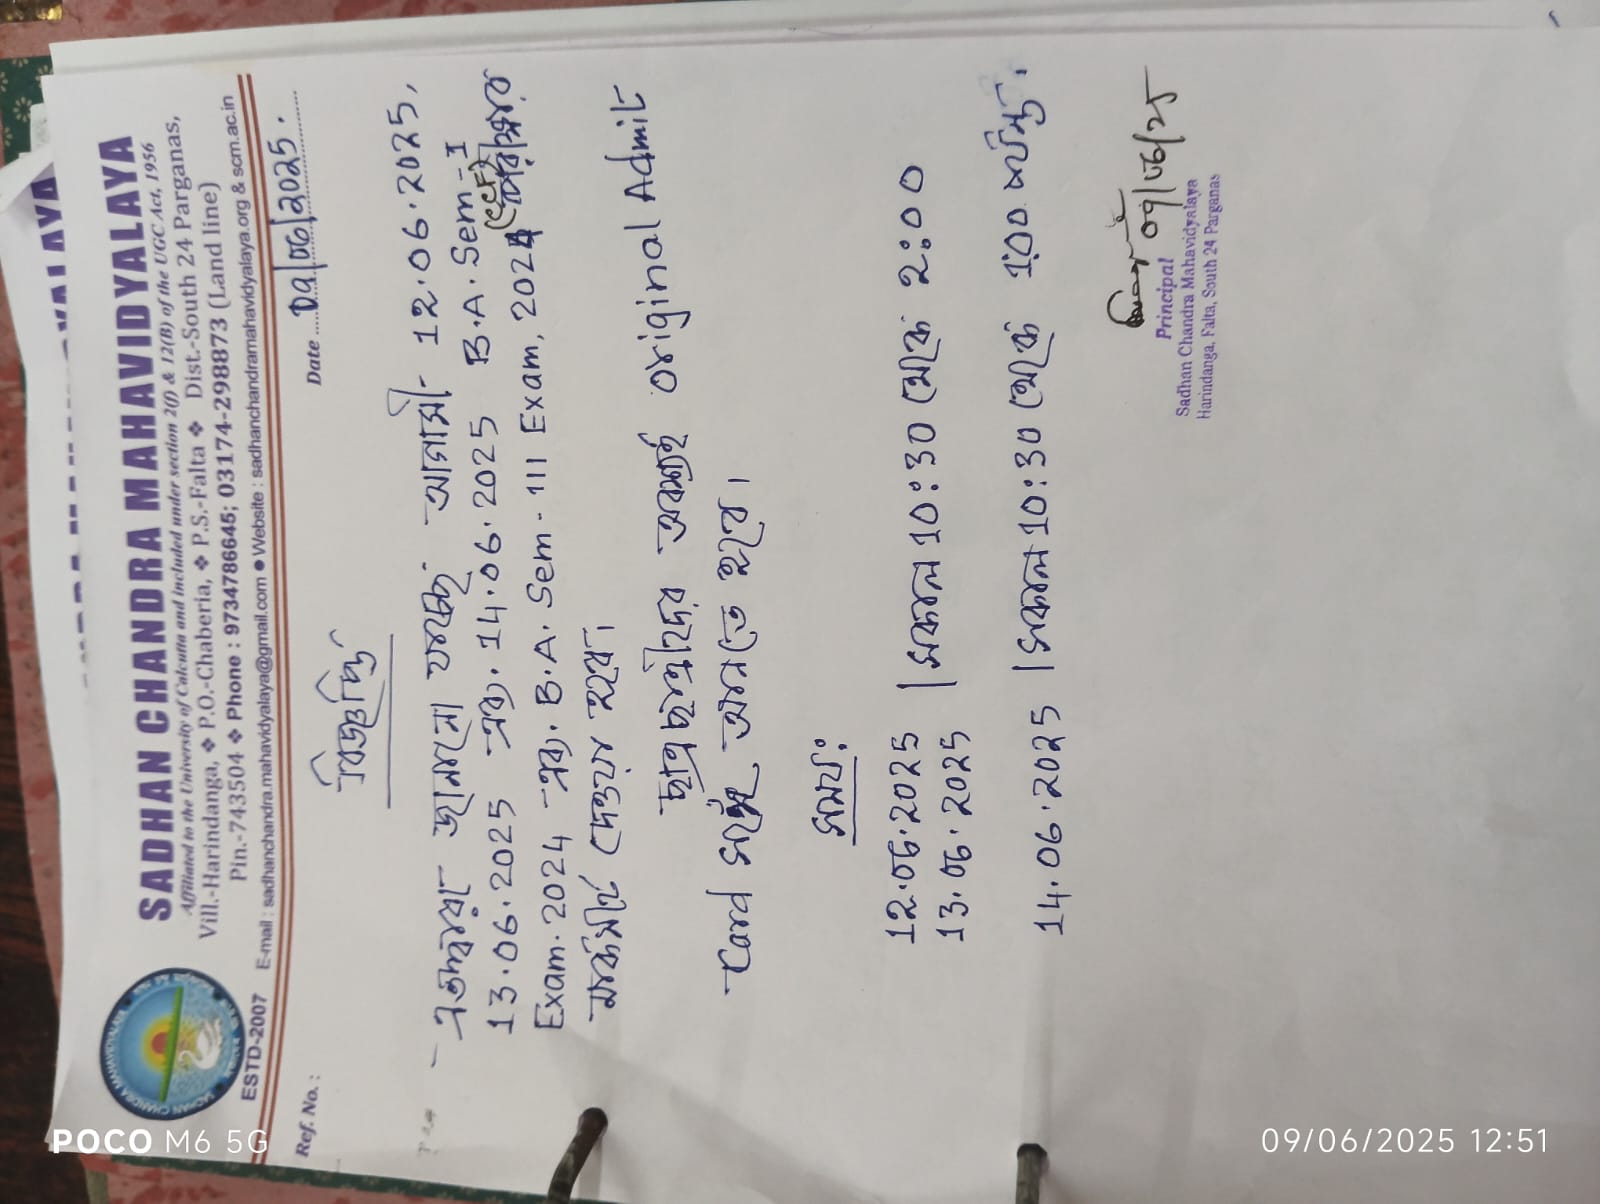 SADHAN CHANDRA MAHAVIDYALAYA
Affiliated to the University of Calcutta and included under section 2(f) & 12(B) of the UGC Act, 1956
Vill.-Harindanga, ❖ P.O.-Chaberia, ❖ P.S.-Falta ❖ Dist.-South 24 Parganas,
Pin.-743504 ❖ Phone : 9734786645; 03174-298873 (Land line)
ESTD-2007 E-mail : sadhanchandra.mahavidyalaya@gmail.com ● Website : sadhanchandramahavidyalaya.org & scm.ac.in
Ref. No. : Date 09/06/2025.
বিজ্ঞপ্তি
এতদ্বারা জানানো যাচ্ছে আগামী 12.06.2025,
13.06.2025 এবং 14.06.2025 B.A. Sem-I
Exam. 2024 এবং B.A. Sem-III Exam, 2024 (CCF) পরীক্ষার
মার্কশীট দেওয়া হবে।
ছাত্রছাত্রীদের অবশ্যই Original Admit
Card সঙ্গে আনতে হবে।
সময়:
12.06.2025 | সকাল 10:30 থেকে 2:00
13.06.2025
14.06.2025 | সকাল 10:30 থেকে 1:00 পর্যন্ত.
09/06/25
Principal
Sadhan Chandra Mahavidyalaya
Harindanga, Falta, South 24 Parganas
POCO M6 5G
09/06/2025 12:51